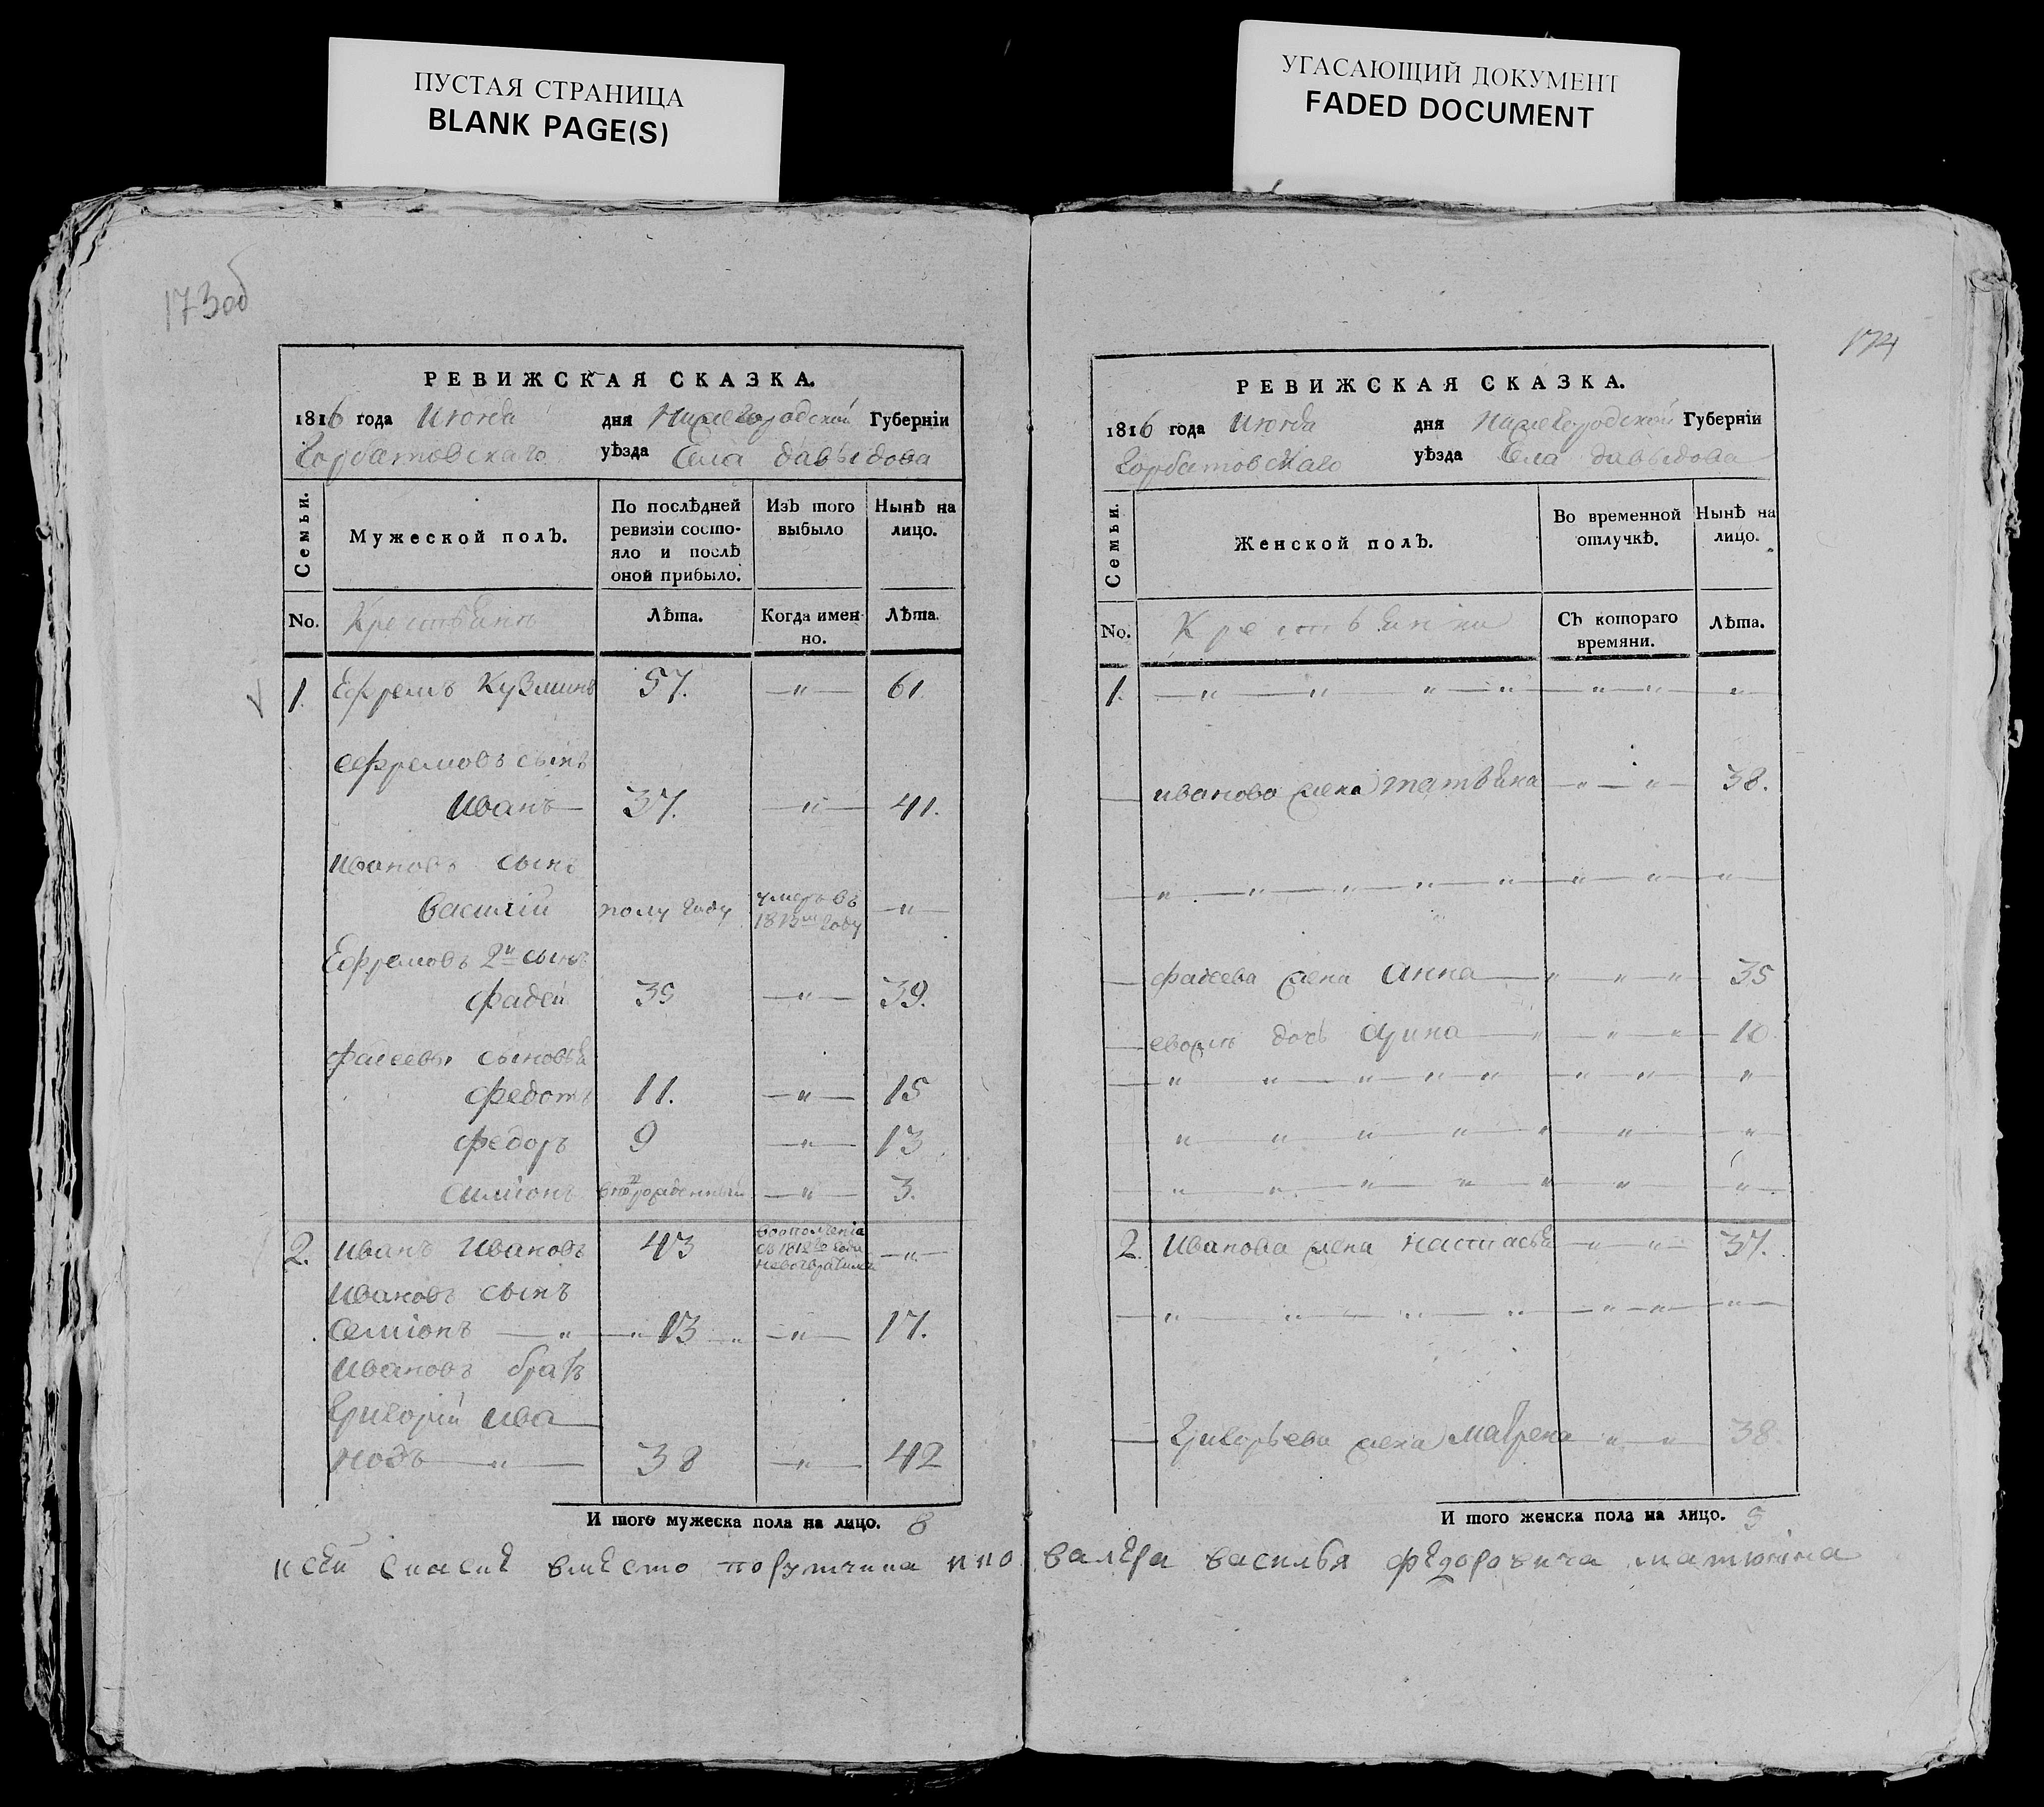 ПУСТАЯ СТРАНИЦА
BLANK PAGE(S)
УГАСАЮЩИЙ ДОКУМЕНТ
FADED DOCUMENT
173об
РЕВИЖСКАЯ СКАЗКА.
1816 года Июня дня Нижегородской Губерніи
Горбатовскаго уѣзда Села давыдова
Семьи.
Мужеской полъ.
По послѣдней ревизіи состо-
яло и послѣ
оной прибыло.
Изъ того выбыло
Нынѣ на лицо.
No. Крестьянъ Лѣта. Когда имен-
но. Лѣта.
1. Ефремъ Кузминъ 57. —"— 61
Ефремовъ сынъ
Иванъ 37. —"— 41.
Ивановъ сынъ
Василий полу году умеръ въ —"—
1813м году
Ефремовъ 2й сынъ
фадей 35 —"— 39.
фадеевы сыновья
федотъ 11. —"— 15
федоръ 9 —"— 13
симионъ —"— 3.
2. иванъ Ивановъ 43 —"—
съ 1812го года
Ивановъ сынъ
Семионъ —"— 13 —"— 17.
Ивановъ братъ
Григорий ива
новъ —"— 38 —"— 42
И того мужеска пола на лицо. 8
174
РЕВИЖСКАЯ СКАЗКА.
1816 года Июня дня Нижегородской Губерніи
Горбатовскаго уѣзда Села давыдова
Семьи.
Женской полъ.
Во временной отлучкѣ.
Нынѣ на лицо.
No. Крестьянки Съ котораго
времяни. Лѣта.
1. — " — " — " — " — " — " — "
иванова жена татьяна — " — " — 38.
— " — " — " — " — " — " — " — "
фадеева жена Анна — " — " — " — 35
евож дочь Арина — " — " — " — 10
— " — " — " — " — " — " — " — "
" — " — " — " — " — " — "
" — " — " — " — " — " — "
2. Иванова жена настасья — " — " — 37.
— " — " — " — " — " — " — " — "
Григорьева жена Маврена — " — " — 38.
И того женска пола на лицо. 5
василья федоровича матюнина